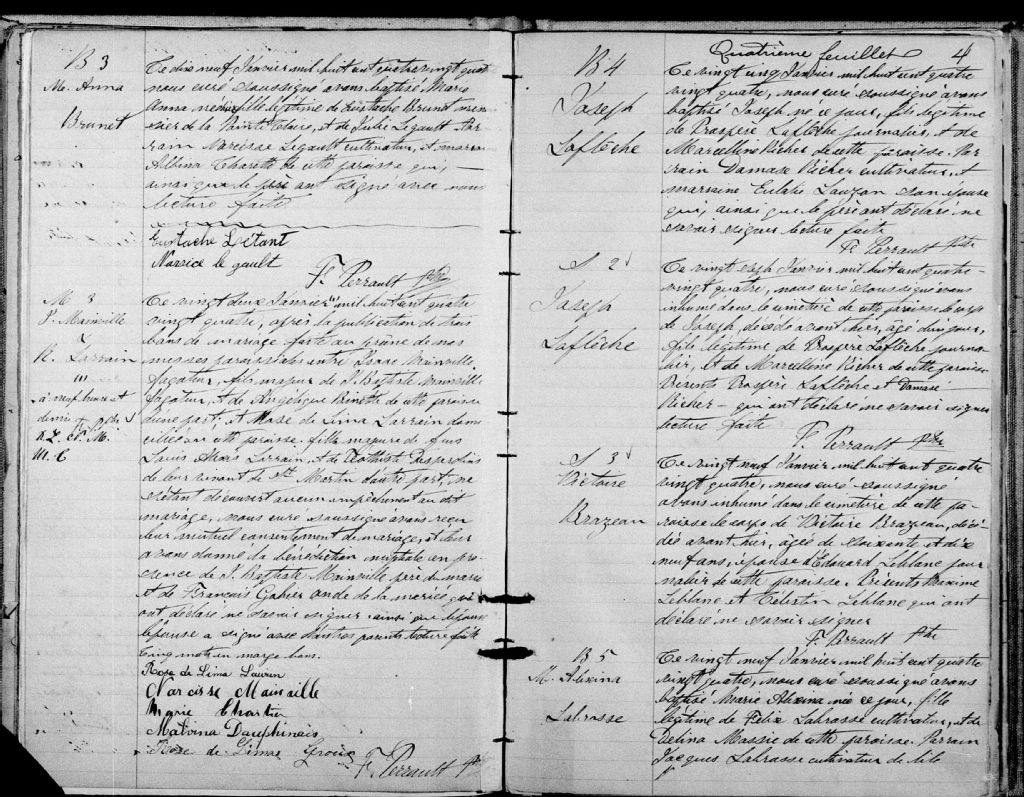 B 3
M. Anna
Brunet
Ce dix neuf Janvier mil huit cent quatre vingt quat
nous curé soussigné avons baptisé Marie
Anna née fille légitime de Eustache Brunet
de la Pointe Claire, et de Julie Legault Par
rain Narcisse Legault cultivateur, et marraine
Albina Charette de cette paroisse qui,
ainsi que le père ont signé avec nous
lecture faite
Eustache Létant
Narsice le gault
F. Perrault Ptre
M 3
I. Mainville
R. Larrain
m
à neuf heures et
demie
M. C
Ce vingt deux Janvier mil huit cent quatre
vingt quatre, après la publication de trois
bans de mariage faite au prône de nos
messes paroissiales entre Isaac Mainville
fils majeur de J. Baptiste Mainville
et de Angelique Brunette de cette paroisse
d'une part; et Rose de Lima Larrain domi
ciliée en cette paroisse fille majeure de feus
Louis Alexis Lorrain, et de Desjardins
de leur vivant de St Martin d'autre part, ne
s'étant découvert aucun empêchement au dit
mariage, nous curé soussigné avons reçu
leur mutuel consentement de mariage, et leur
avons donné la bénédiction nuptiale en pré-
sence de J. Baptiste Mainville père du marié
et de François Gahier oncle de la mariée, qui
ont déclaré ne savoir signer ainsi que l'époux
l'épouse a signé avec d'autres parents lecture faite
Cinq mots en marge bons.
Rose de Lima Laurin
Narcisse Mainville
Marie Chartier
Malvina Dauphinais
Rose de Limas Groux
F. Perrault Ptre
Quatrième feuillet 4
B 4
Joseph
Laflèche
Ce vingt cinq Janvier mil huit cent quatre
vingt quatre, nous curé soussigné avons
baptisé Joseph, né ce jour, fils légitime
de Prospère Laflèche journalier, et de
Marcelline Richer de cette paroisse. Par
rain Damase Richer cultivateur, et
marraine Eulalie Lauzon son épouse
qui, ainsi que le père ont déclaré ne
savoir signer lecture faite
F. Perrault Ptre
S 2
Joseph
Laflèche
Ce vingt sept Janvier mil huit cent quatre-
vingt quatre, nous curé soussigné avons
inhumé dans le cimetière de cette paroisse le corps
de Joseph, décédé avant hier, âgé d'un jour,
fils légitime de Prospère Laflèche journa-
lier, et de Marcelline Richer de cette paroisse
Présents Prospère Laflèche et Damase
Richer - qui ont déclaré ne savoir signer
lecture faite
F. Perrault Ptre
S 3
Victoire
Brazeau
Ce vingt neuf Janvier mil huit cent quatre
vingt quatre, nous curé soussigné
avons inhumé dans le cimetière de cette pa-
roisse le corps de Victoire Brazeau, décé
dée avant hier, âgée de soixante et dix
neuf ans, épouse d'Edouard Leblanc jour
nalier de cette paroisse. Présents Maxime
Leblanc et Célestin Leblanc qui ont
déclaré ne savoir signer
F. Perrault Ptre
B 5
M. Alexina
Labrosse
Ce vingt neuf Janvier mil huit cent quatre
vingt quatre, nous curé soussigné avons
baptisé Marie Alexina née ce jour, fille
légitime de Félix Labrosse cultivateur, et de
Delina Massie de cette paroisse. Parrain
Jacques Labrosse cultivateur de